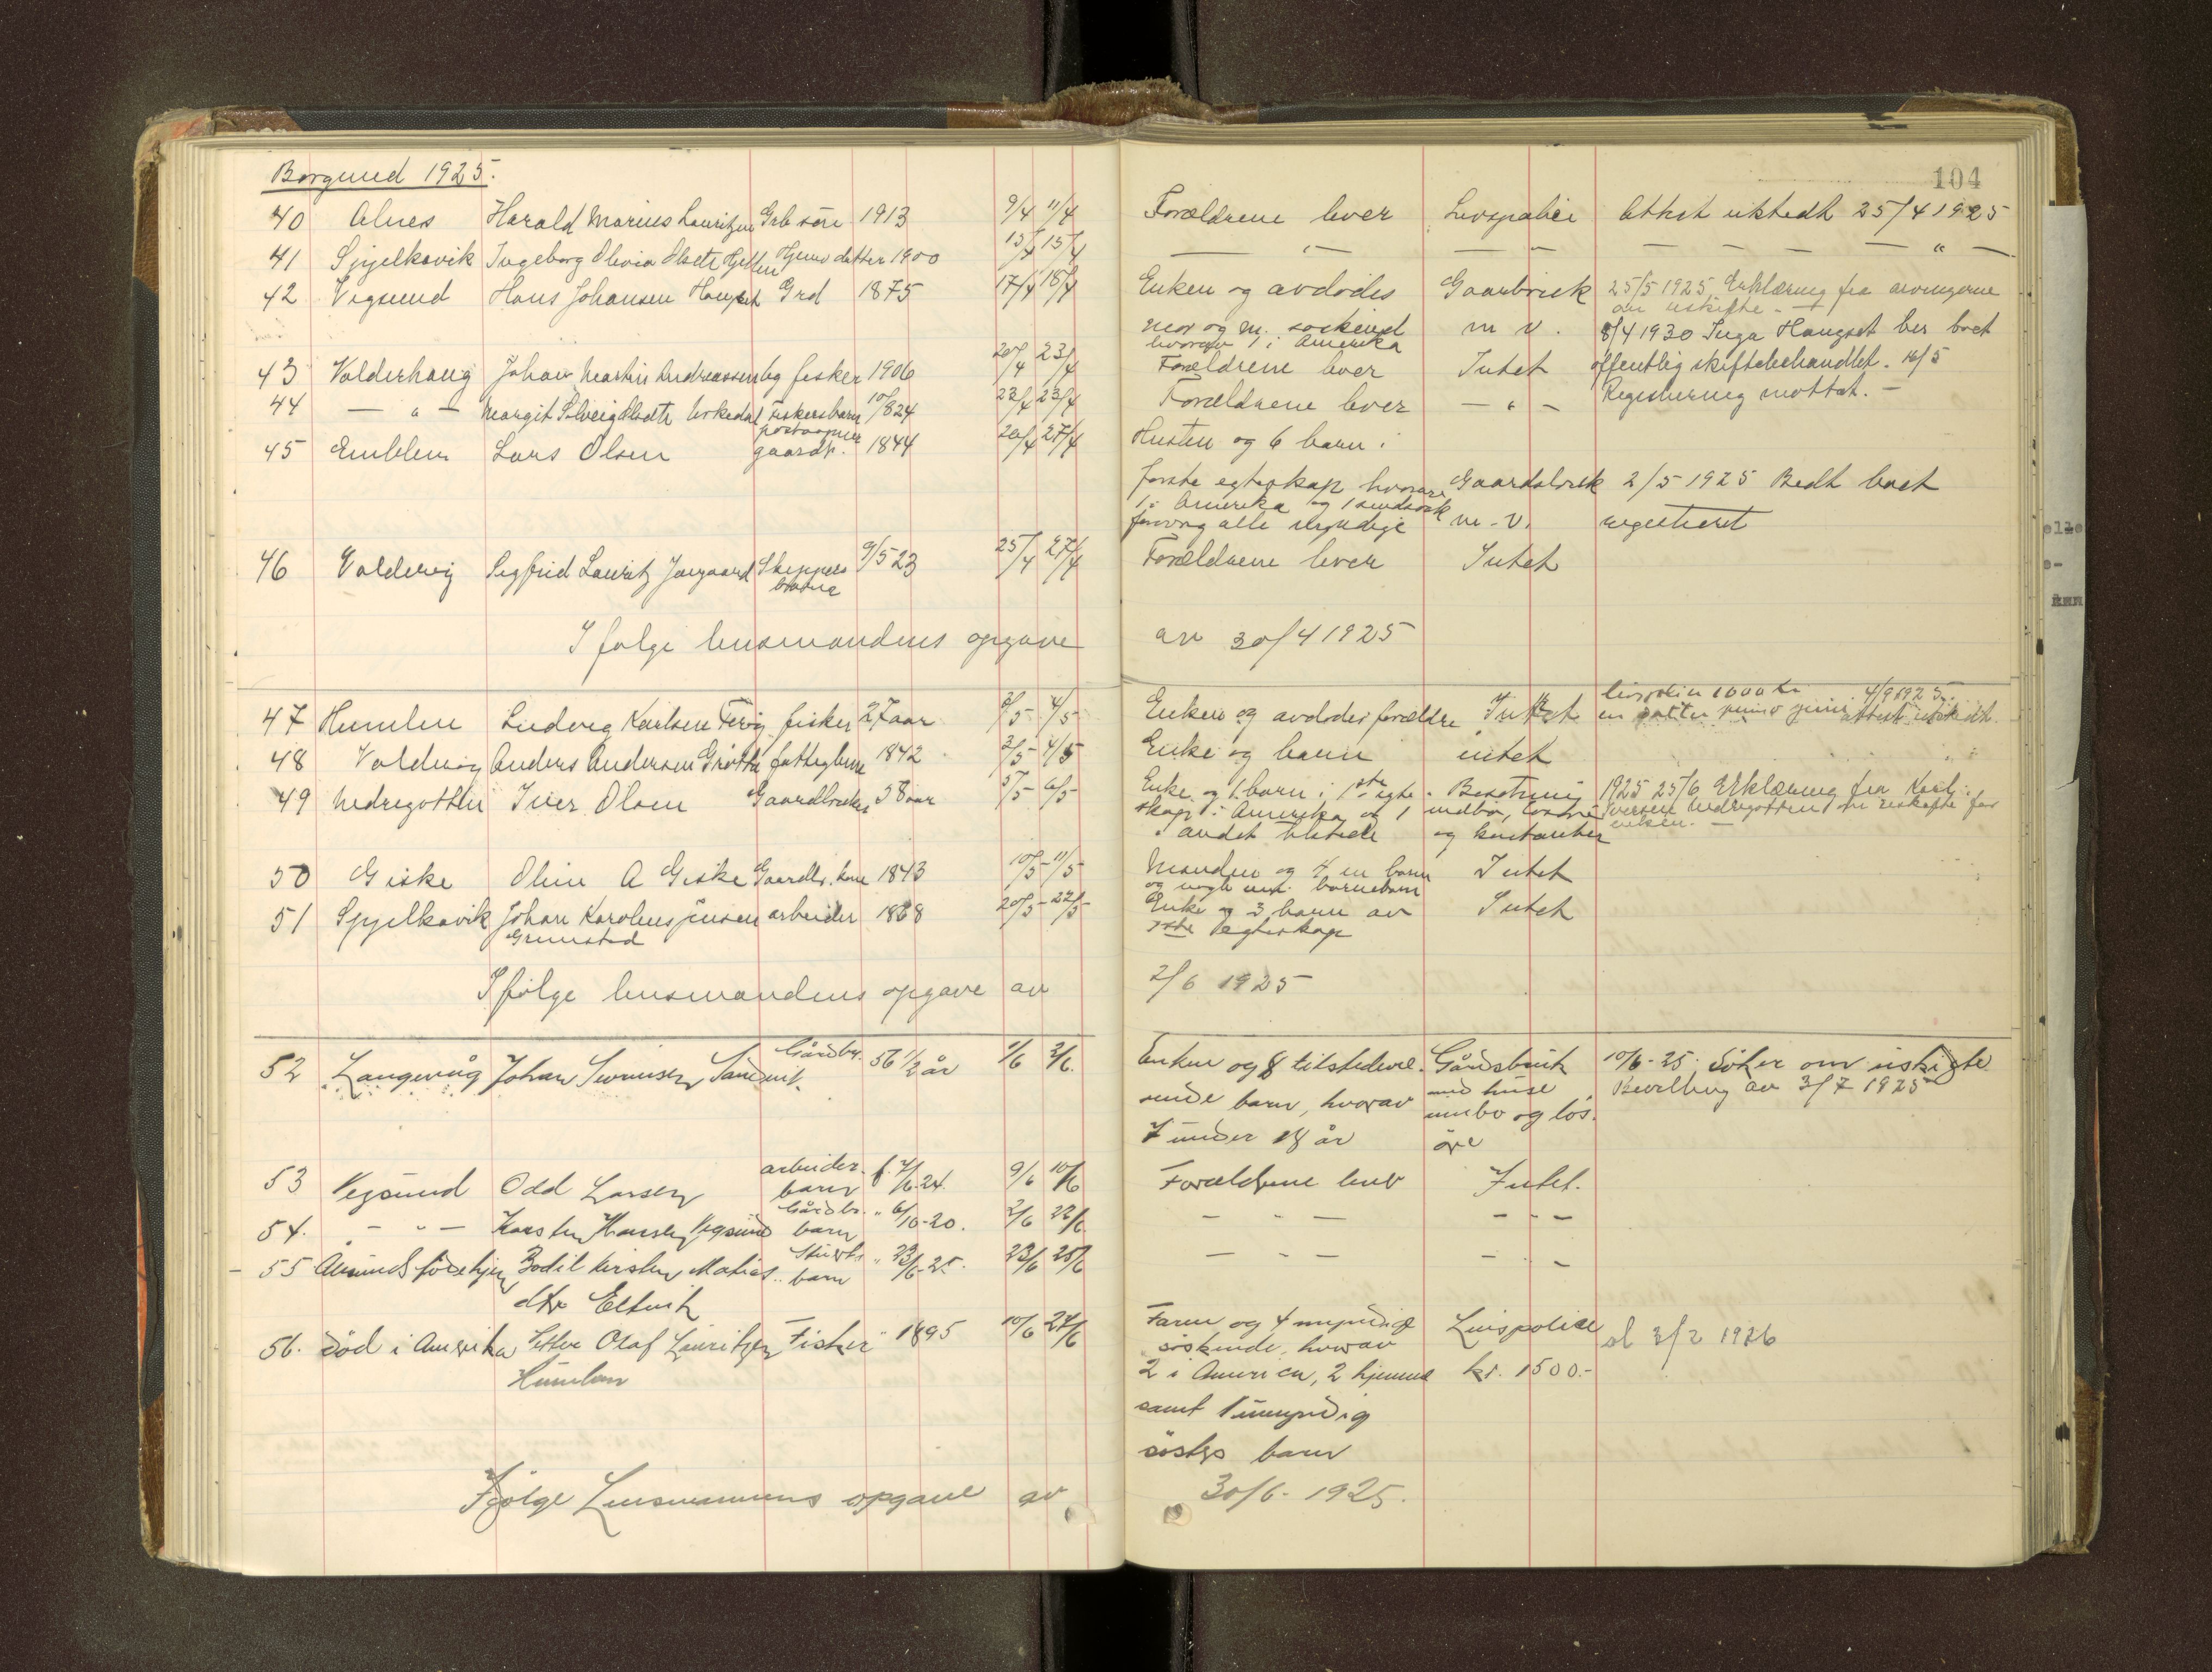 Borgund 1925.
104
40 Alnes Harald Marius Lauritzen Grb søn 1913 9/4 11/4 Forældrene lever Livspolice Attest utstedt 25/4 1925
41 Spjelkavik Ingeborg Olivia Olsdtr Hjemv datter 1900 13/4 15/4 — " — — " — — — — — " —
42 Vegsund Hans Johansen Haugset Grd 1875 17/4 18/4 Enken og avdødes Gaarbruk 25/5 1925 Erklæring fra arvingerne
om uskifte -
mor og m. søskend m v. 8/4 1930 Inga Haugset ber boet
hvorav 1 i Amerika
43 Valderhaug Johan Martin Andreassen fisker 1906 20/4 23/4 Forældrene lever Intet offentlig skiftebehandlet. 16/5
44 — " — Margit Solveig Urkedal Fiskersbarn 10/8 24 22/4 23/4 Forældrene lever — " — Registrering mottat. —
postaapner
45 Emblem Lars Olsen gaardbr. 1844 26/4 27/4 Hustru og 6 barn i
første egteskap hvorav Gaardsbruk 2/5 1925 Bedt boet
1 i Amerika og 1 sindssyk
forøvrig alle myndige m. v. registreret
46 Valderøy Sigfrid Lauritz Skippers 9/5 23 25/4 27/4 Forældrene lever Intet
barn
Ifølge lensmandens opgave av 30/4 1925
livspolice 1000 kr 4/9 1925.
47 Humlen Ludvig Karlsen Terøy fisker 27 aar 2/5 4/5 Enken og avdødes forældre Intet attest utstedt
48 Valderøy Anders Andersen Grøtta fattiglem 1842 2/5 4/5 Enke og barn intet
49 Nedregotten Iver Olsen Gaardbruker 58 aar 5/5 6/5 Enke og 1 barn i 1ste egte- Besetning 1925 25/6 Erklæring fra
skap i Amerika og 1 indbo, løsøre Iversen Nedregotten om uskifte for
i andet tilstede og kontanter enken. —
50 Giske Oline A Giske Gaardbr. kone 1843 10/5 11/5 Manden og 4 m barn Intet
og nogle barnebarn
51 Spjelkavik Johan Karolius Jensen arbeider 1868 20/5 22/5 Enke og 3 barn av Intet
Grimstad
1ste egteskap
Ifølge lensmandens opgave av 2/6 1925
52 Langevåg Johan Sandvik Gårdbr. 56 1/2 år 1/6 2/6. Enken og 8 tilstedevæ- Gårdsbruk 10/6-25. Söker om uskifte
rende barn, hvorav med huse Bevilling av 3/7 1925
innbo og lös-
7 under 18 år öre
53 Vegsund Odd Larsen arbeider- f. 7/6-24. 9/6 10/6 Forældrene lever Intet.
barn
54. — " — Karsten Hansen Vegsund Gårdbr. " 6/10-20. 2/6 22/6. — " — — " —
barn
55 Bodil Kirsten Matias- barn " 23/6-25. 23/6 25/6 — " — — " —
dtr Eltvik
56. död i Amerika Petter Olaf Lauritzen Fisker " 1895 10/6 27/6 Faren og 4 myndige Livspolice 3/2 1926
Humlen
söskende, hvorav
2 i Amerika, 2 hjemme kr. 1500.-
samt 1 umyndig
sösters barn
Ifölge Lensmannens opgave av 30/6-1925.